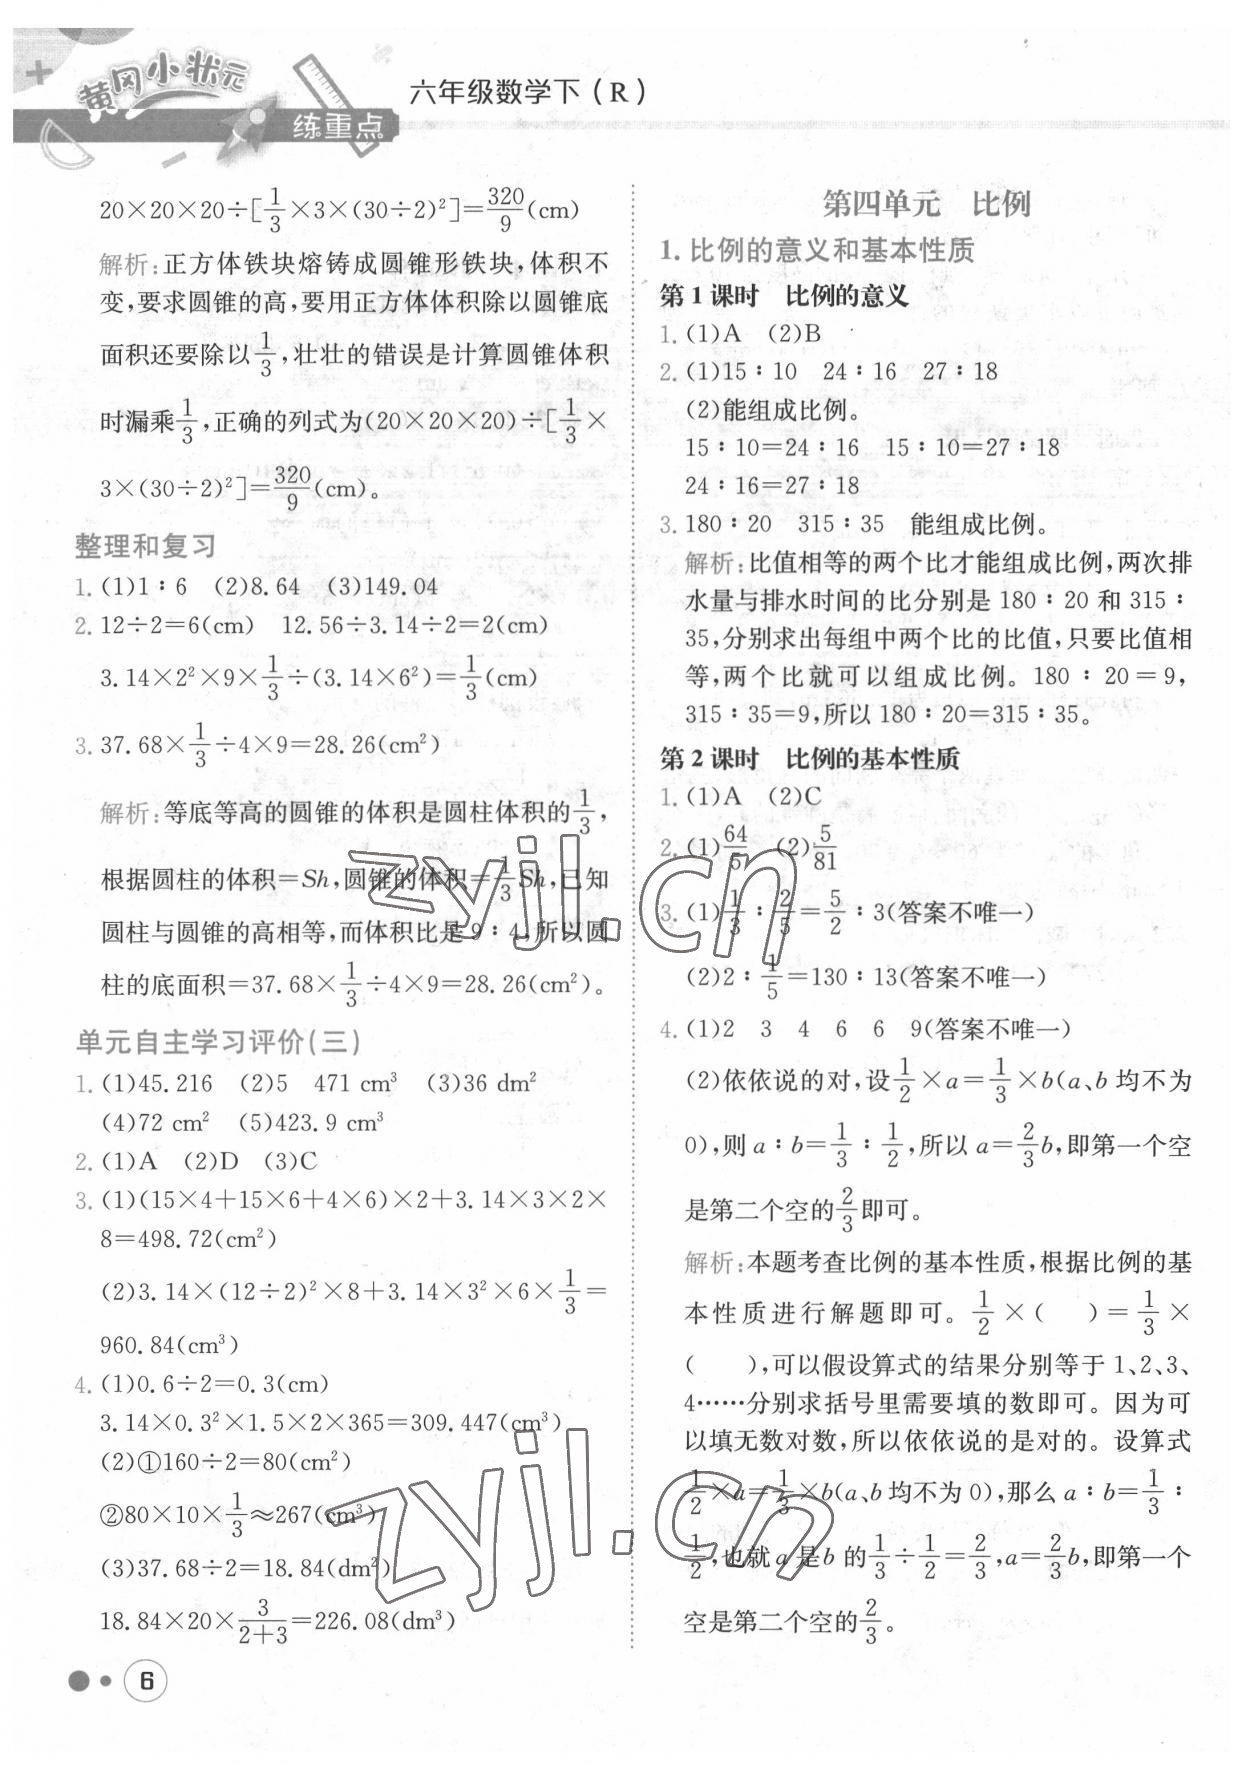 黄冈小状元
练重点
六年级数学下（R）
20×20×20÷[1/3×3×(30÷2)²]=320/9(cm)
解析:正方体铁块熔铸成圆锥形铁块,体积不
变,要求圆锥的高,要用正方体体积除以圆锥底
面积还要除以1/3,壮壮的错误是计算圆锥体积
时漏乘1/3,正确的列式为(20×20×20)÷[1/3×
3×(30÷2)²]=320/9(cm)。
整理和复习
1. (1)1∶6 (2)8.64 (3)149.04
2. 12÷2=6(cm) 12.56÷3.14÷2=2(cm)
3.14×2²×9×1/3÷(3.14×6²)=1/3(cm)
3. 37.68×1/3÷4×9=28.26(cm²)
解析:等底等高的圆锥的体积是圆柱体积的1/3,
根据圆柱的体积=Sh,圆锥的体积=1/3Sh,已知
圆柱与圆锥的高相等,而体积比是9∶4,所以圆
柱的底面积=37.68×1/3÷4×9=28.26(cm²)。
单元自主学习评价(三)
1. (1)45.216 (2)5 471 cm³ (3)36 dm²
(4)72 cm² (5)423.9 cm³
2. (1)A (2)D (3)C
3. (1)(15×4+15×6+4×6)×2+3.14×3×2×
8=498.72(cm²)
(2)3.14×(12÷2)²×8+3.14×3²×6×1/3=
960.84(cm³)
4. (1)0.6÷2=0.3(cm)
3.14×0.3²×1.5×2×365=309.447(cm³)
(2)①160÷2=80(cm²)
②80×10×1/3≈267(cm³)
(3)37.68÷2=18.84(dm²)
18.84×20×3/(2+3)=226.08(dm³)
6
第四单元 比例
1. 比例的意义和基本性质
第1课时 比例的意义
1. (1)A (2)B
2. (1)15∶10 24∶16 27∶18
(2)能组成比例。
15∶10=24∶16 15∶10=27∶18
24∶16=27∶18
3. 180∶20 315∶35 能组成比例。
解析:比值相等的两个比才能组成比例,两次排
水量与排水时间的比分别是180∶20和315∶
35,分别求出每组中两个比的比值,只要比值相
等,两个比就可以组成比例。180∶20=9,
315∶35=9,所以180∶20=315∶35。
第2课时 比例的基本性质
1. (1)A (2)C
2. (1)64/57 (2)5/81
3. (1)1/3∶2/5=5/2∶3(答案不唯一)
(2)2∶1/5=130∶13(答案不唯一)
4. (1)2 3 4 6 6 9(答案不唯一)
(2)依依说的对,设1/2×a=1/3×b(a、b均不为
0),则a∶b=1/3∶1/2,所以a=2/3b,即第一个空
是第二个空的2/3即可。
解析:本题考查比例的基本性质,根据比例的基
本性质进行解题即可。1/2×( )=1/3×
( ),可以假设算式的结果分别等于1、2、3、
4……分别求括号里需要填的数即可。因为可
以填无数对数,所以依依说的是对的。设算式
1/2×a=1/3×b(a、b均不为0),那么a∶b=1/3∶
1/2,也就a是b的1/3÷1/2=2/3,a=2/3b,即第一个
空是第二个空的2/3。
zyjl.cn
zyjl.cn